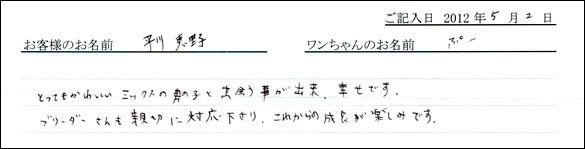 ご記入日 2012 年 5 月 2 日
お客様のお名前 平川 恵野 ワンちゃんのお名前 ぷー
とってもかわいい ミックスの男の子と出会う事が出来、幸せです。
ブリーダーさんも親切に対応下さり、これからの成長が楽しみです。